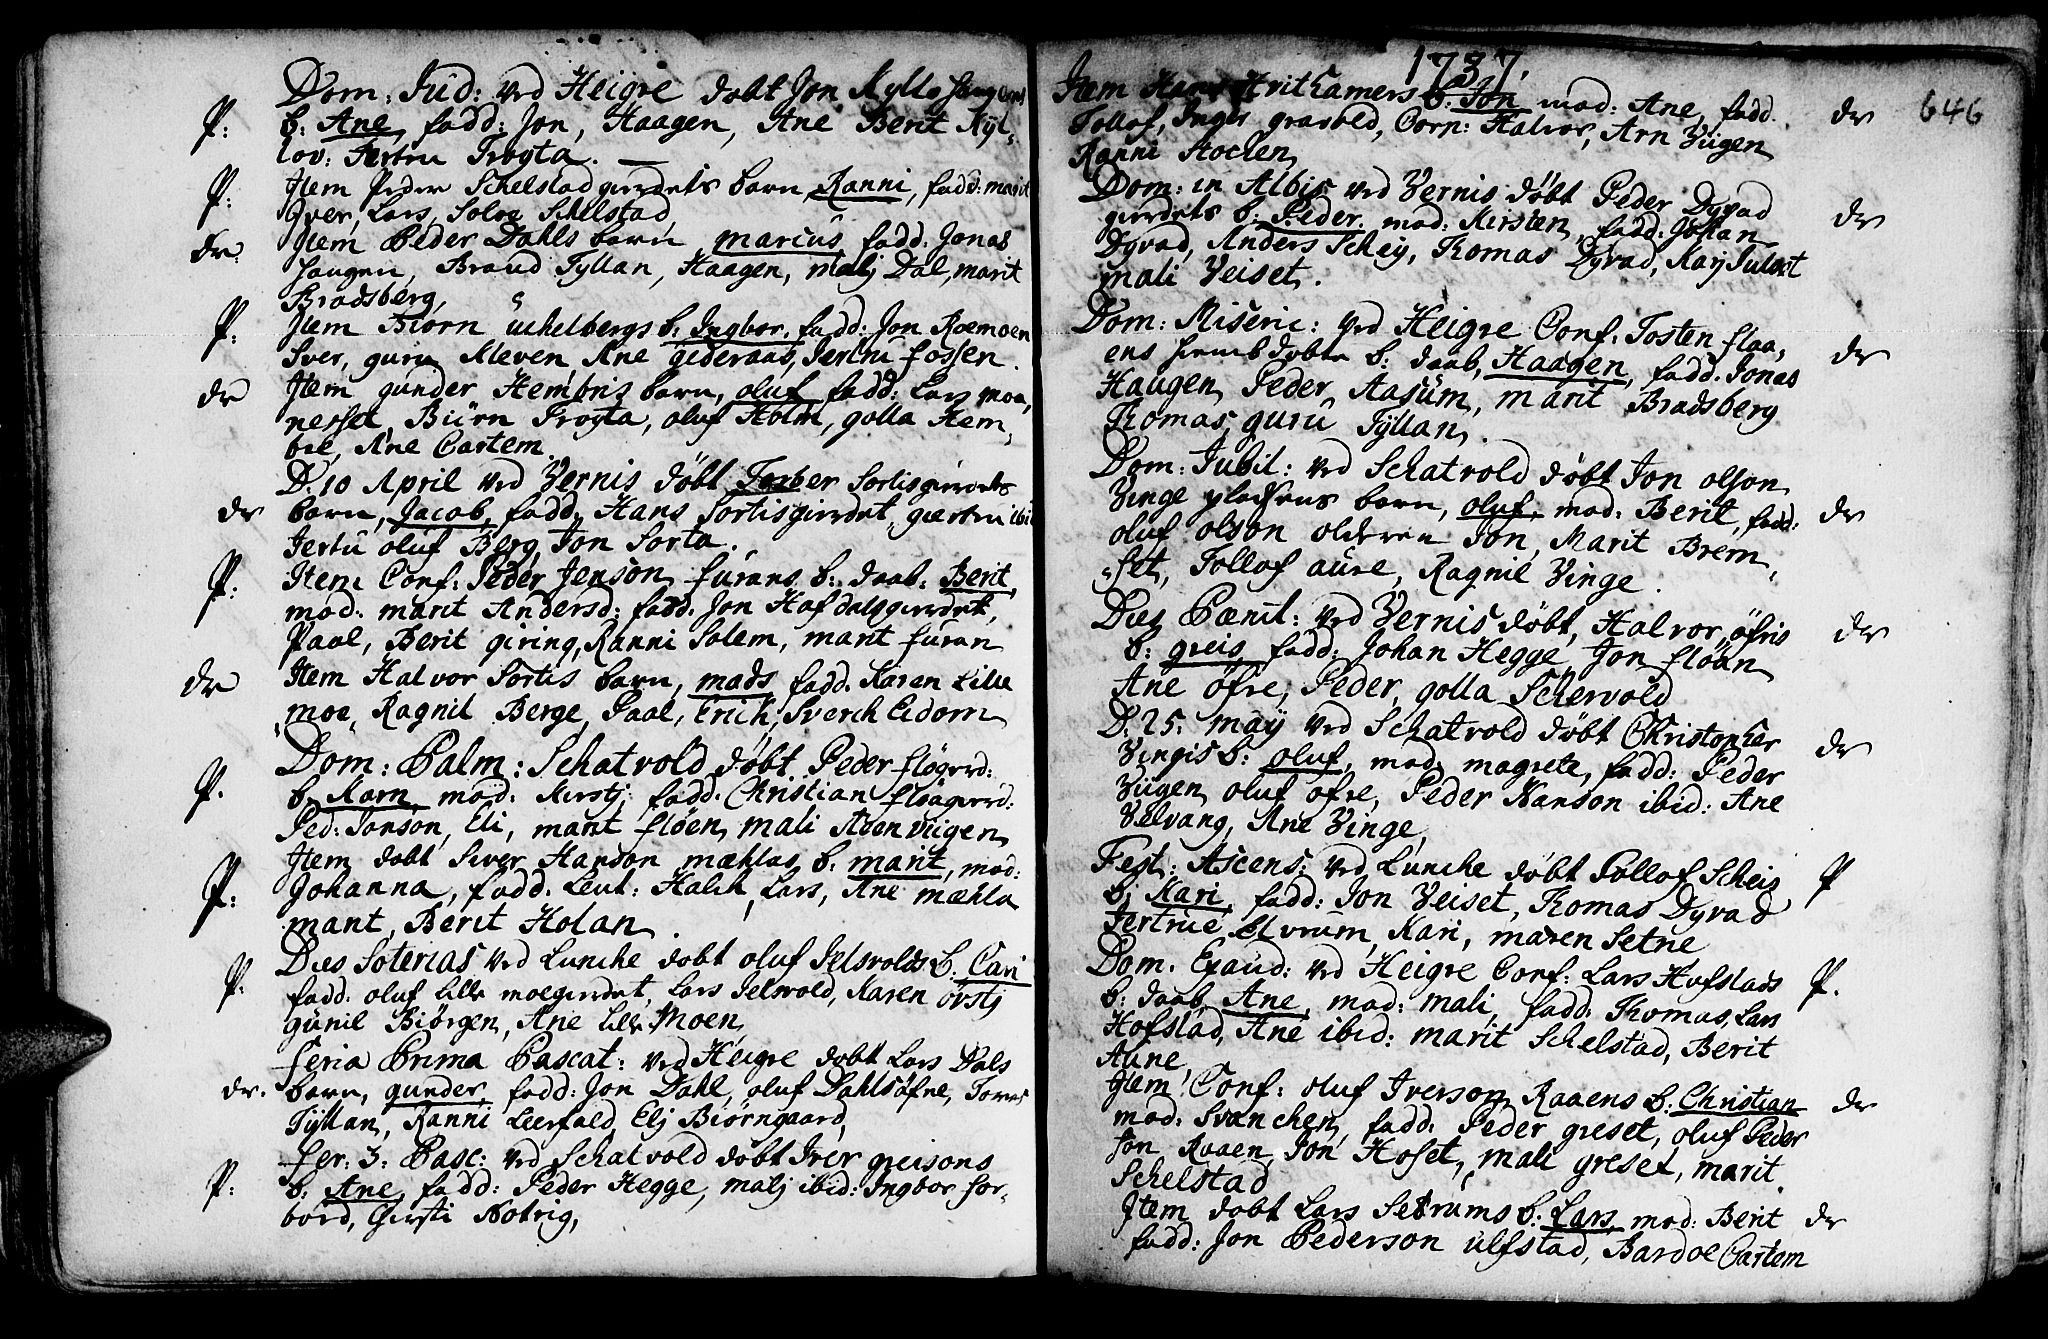 Dom: Jud: ved Heigre døbt Jon Kylloshaugens
P: b: Ane, fadd: Jon, Haagen, Ane Berit Kyl-
lov: Jertru Trøgta.
P: Jtem Peder Schelstad gierdets barn, Ranni, fadd: marit
Jver, Lars, Solve Schelstad
dr: Jtem Peder Dahls barn marcus, fadd: Jonas
haugen, Brand Tyllan, Haagen, malj Dal, marit
Bradsberg,
P: Jtem Biørn uchelbergs b: Ingbor, fadd: Jon Roemoen
Sver, guru Kleven, Ane gideraas, Jertru fossen.
dr Jtem gunder Hembris barn, oluf, fadd: Lars moe,
nerset, Biörn Trogta, oluf Holm, golla Hem,
bre, Ane Cartem
D. 10 April ved Vernis døbt Torber Sortisgierdets
dr barn, Jacob, fadd: Hans Sortisgierdet, giertru ibid
Jertu oluf Berg, Jon Sorta.
P: Item Conf: Peder Jenson furans b: daab: Berit,
mod: marit Andersd: fadd. Jon Hafdalsgierdet,
Paal, Berit giring, Ranni Solem, marit furan
dr Jtem Halvor Sortis barn, mads, fadd. Karen Lille
moe, Ragnil Berge, Paal, Erich, Sverch Eidom
Dom: Palm: Schatvold døbt Peder fløgierd:
P. b. Karn, mod: Kirstj, fadd. Christian fløgierd:
Ped: Jonson, Eli, marit fløen, mali Aaenviigen
Jtem døbt Siver Hanson mæhlas b: marit, mod:
P: Johanna, fadd. Leut: Halck, Lars, Ane mæhla
marit, Berit Holan.
Dies Soterias ved Lunche døbt oluf Jelsvolds b. Cari
P. fadd: oluf Lille moegierdet, Lars Jelsvold, Karen øvstj
gunil Biørgen, Ane lille Moen,
feria Prima Pascat: ved Heigre døbt Lars Dals
dr. barn, gunder, fadd: Jon Dahl, oluf Dahlsøfne, Tomas
Tyllan, Ranni Leerfald, Elj Biørngaard,
fer: 3. Pasc: ved Schatvold døbt Jver greisons
P: b: Ane, fadd: Peder Hegge, malj ibid: Ingbor for-
bord, Giersti Kotrig,
1737,
646
Jtem Hans Hvithamers b. Jon mod: Ane, fadd. dr
Tollof, Inger graabed, Corn: Halvor, Arn Viigen
Ranni Stochen
Dom: in Albis ved Vernis døbt Peder Dyvad
gierdets b: Peder, mod: Kirsten, fadd: Johan dr
Dyvad, Anders Schey, Thomas Dyvad, Karj
mali Veiset.
Dom: Miseric: ved Heigre Conf. Tosten flaa,
ens hiemb døbte b: daab, Haagen, fadd. Jonas dr
Haugen, Peder Aasüm, marit Bradsberg
Thomas, guru Tyllan.
Dom: Jubil: ved Schatvold døbt Jon olson
Vinge pladsens barn, oluf, mod: Berit, fadd: dr
oluf olson olderen Jon, Marit Brem,
set, Tollof aune, Ragnil Vinge.
Dies Pænit: ved Vernis døbt, Halvor øfris dr
b. greis, fadd: Johan Hegge, Jon fløan
Ane øfre, Peder, golla Schervold
D. 25. may ved Schatvold døbt Christopher
Vingis b: oluf, mod magrete, fadd: Peder dr
Viigen oluf øfre, Peder Hanson ibid: Ane
Velvang, Ane Vinge,
Fest: Ascens: ved Lunche døbt Tollof Scheis P
b: Kari, fadd: Jon Veiset, Thomas Dyvad
Jertrue Elvrum, Kari, maren Setne
Dom. Exaud: ved Heigre Conf: Lars Hofstads P.
b: daab, Ane, mod: mali, fadd: Thomas, Lars
Hofstad, Ane ibid: marit Schelstad, Berit
Aune,
Jtem Conf: oluf Jverson Raaens b: Christian dr
mod: Svanchen, fadd: Peder greset, oluf Peder
son Raaen, Jon Hofset, mali greset, marit
Schelstad
Jtem døbt Lars Setrums b: Lars, mod: Berit dr
fadd: Jon Pederson ulfstad, Bardoe Cartem